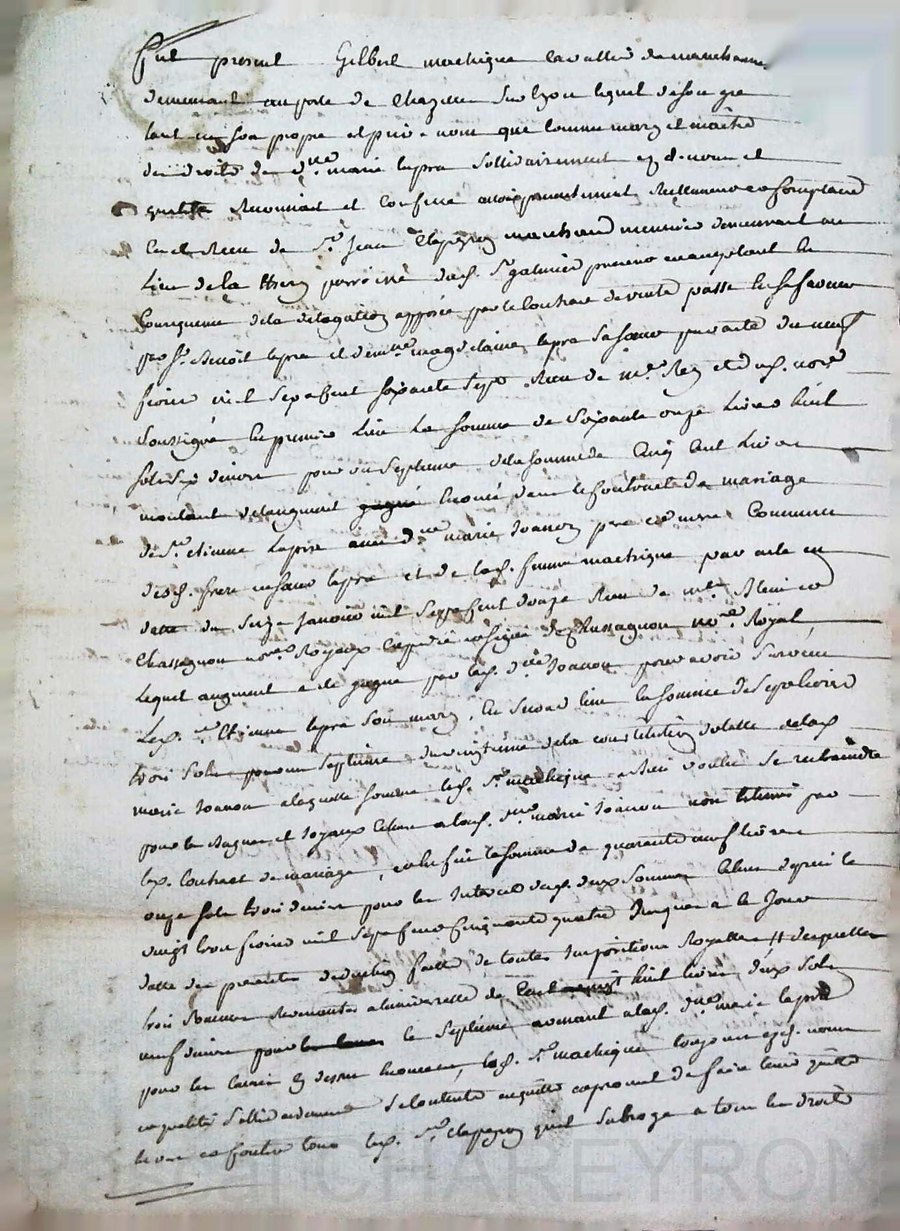 Fut present Gilbert machigue cavallier de marechaussée
demeurant au poste de Chazelle sur Lyon lequel de son gre
tant en son propre et privé nom que comme mary et maitre
des droits de d.lle marie lapra sollidairement esd. nom et
qualité reconnait et confesse avoir presentement reellement et comptant
eu et receu de s.r Jean Clapeyron marchand meunier demeurant au
lieu de la thiery parroisse dud. s.t galmier present et acceptant en
consequence de la delegation apposée par le contrat de vente passé en sa faveur
par s.r Benoit lapra et dem.lle magdelaine lapra sa soeur par acte du neuf
fevrier mil sept cent soixante sept. Receu de m.e Rey et dud. no.re
soussigné en premier lieu la somme de soixante onze livres huit
sols six deniers pour un septieme de la somme de cinq cent livres
montant de l'augment enoncé dans le contract de mariage
de s.r etienne lapra avec d.lle marie Joanon pere et mere communs
desd. frere et soeur lapra et de lad. femme machigue par acte en
datte du seize janvier mil sept cent douze Receu de m.es et
Chassagnon no.res Royaux expedié et signé de Chassagnon no.re Royal
lequel augment a été gagné par lad. d.lle Joanon pour avoir survecu
led. s.r Etienne lapra son mary. En second lieu la somme de sept livres
trois sols pour un septieme du vingtieme de la constitution dotalle de lad.
marie Joanon a laquelle somme led. s.r machigue a bien voulu se restraindre
pour les bagues et joyaux echeus a lad. d.lle marie Joanon non estimés par
led. contract de mariage, enfin la somme de quarante neuf livres
onze sols trois deniers pour les interets desd. deux sommes echeus depuis le
vingt trois fevrier mil sept cent cinquante quatre jusques a ce jour
datte des presentes deduction faitte de toutes impositions Royalles # desquelles
trois sommes remontés a l'universelle de cent vingt huit livres deux sols
neuf deniers pour le septieme revenant a lad. d.lle marie lapra
pour les causes cy dessus enoncées, led. s.r machigue toujours esd. noms
et qualités sollidairement se contente en quitte et promet de faire tenir quitte
envers et contre tous led. s.r Clapeyron qu'il subroge a tous les droits
Robert CHAREYRON